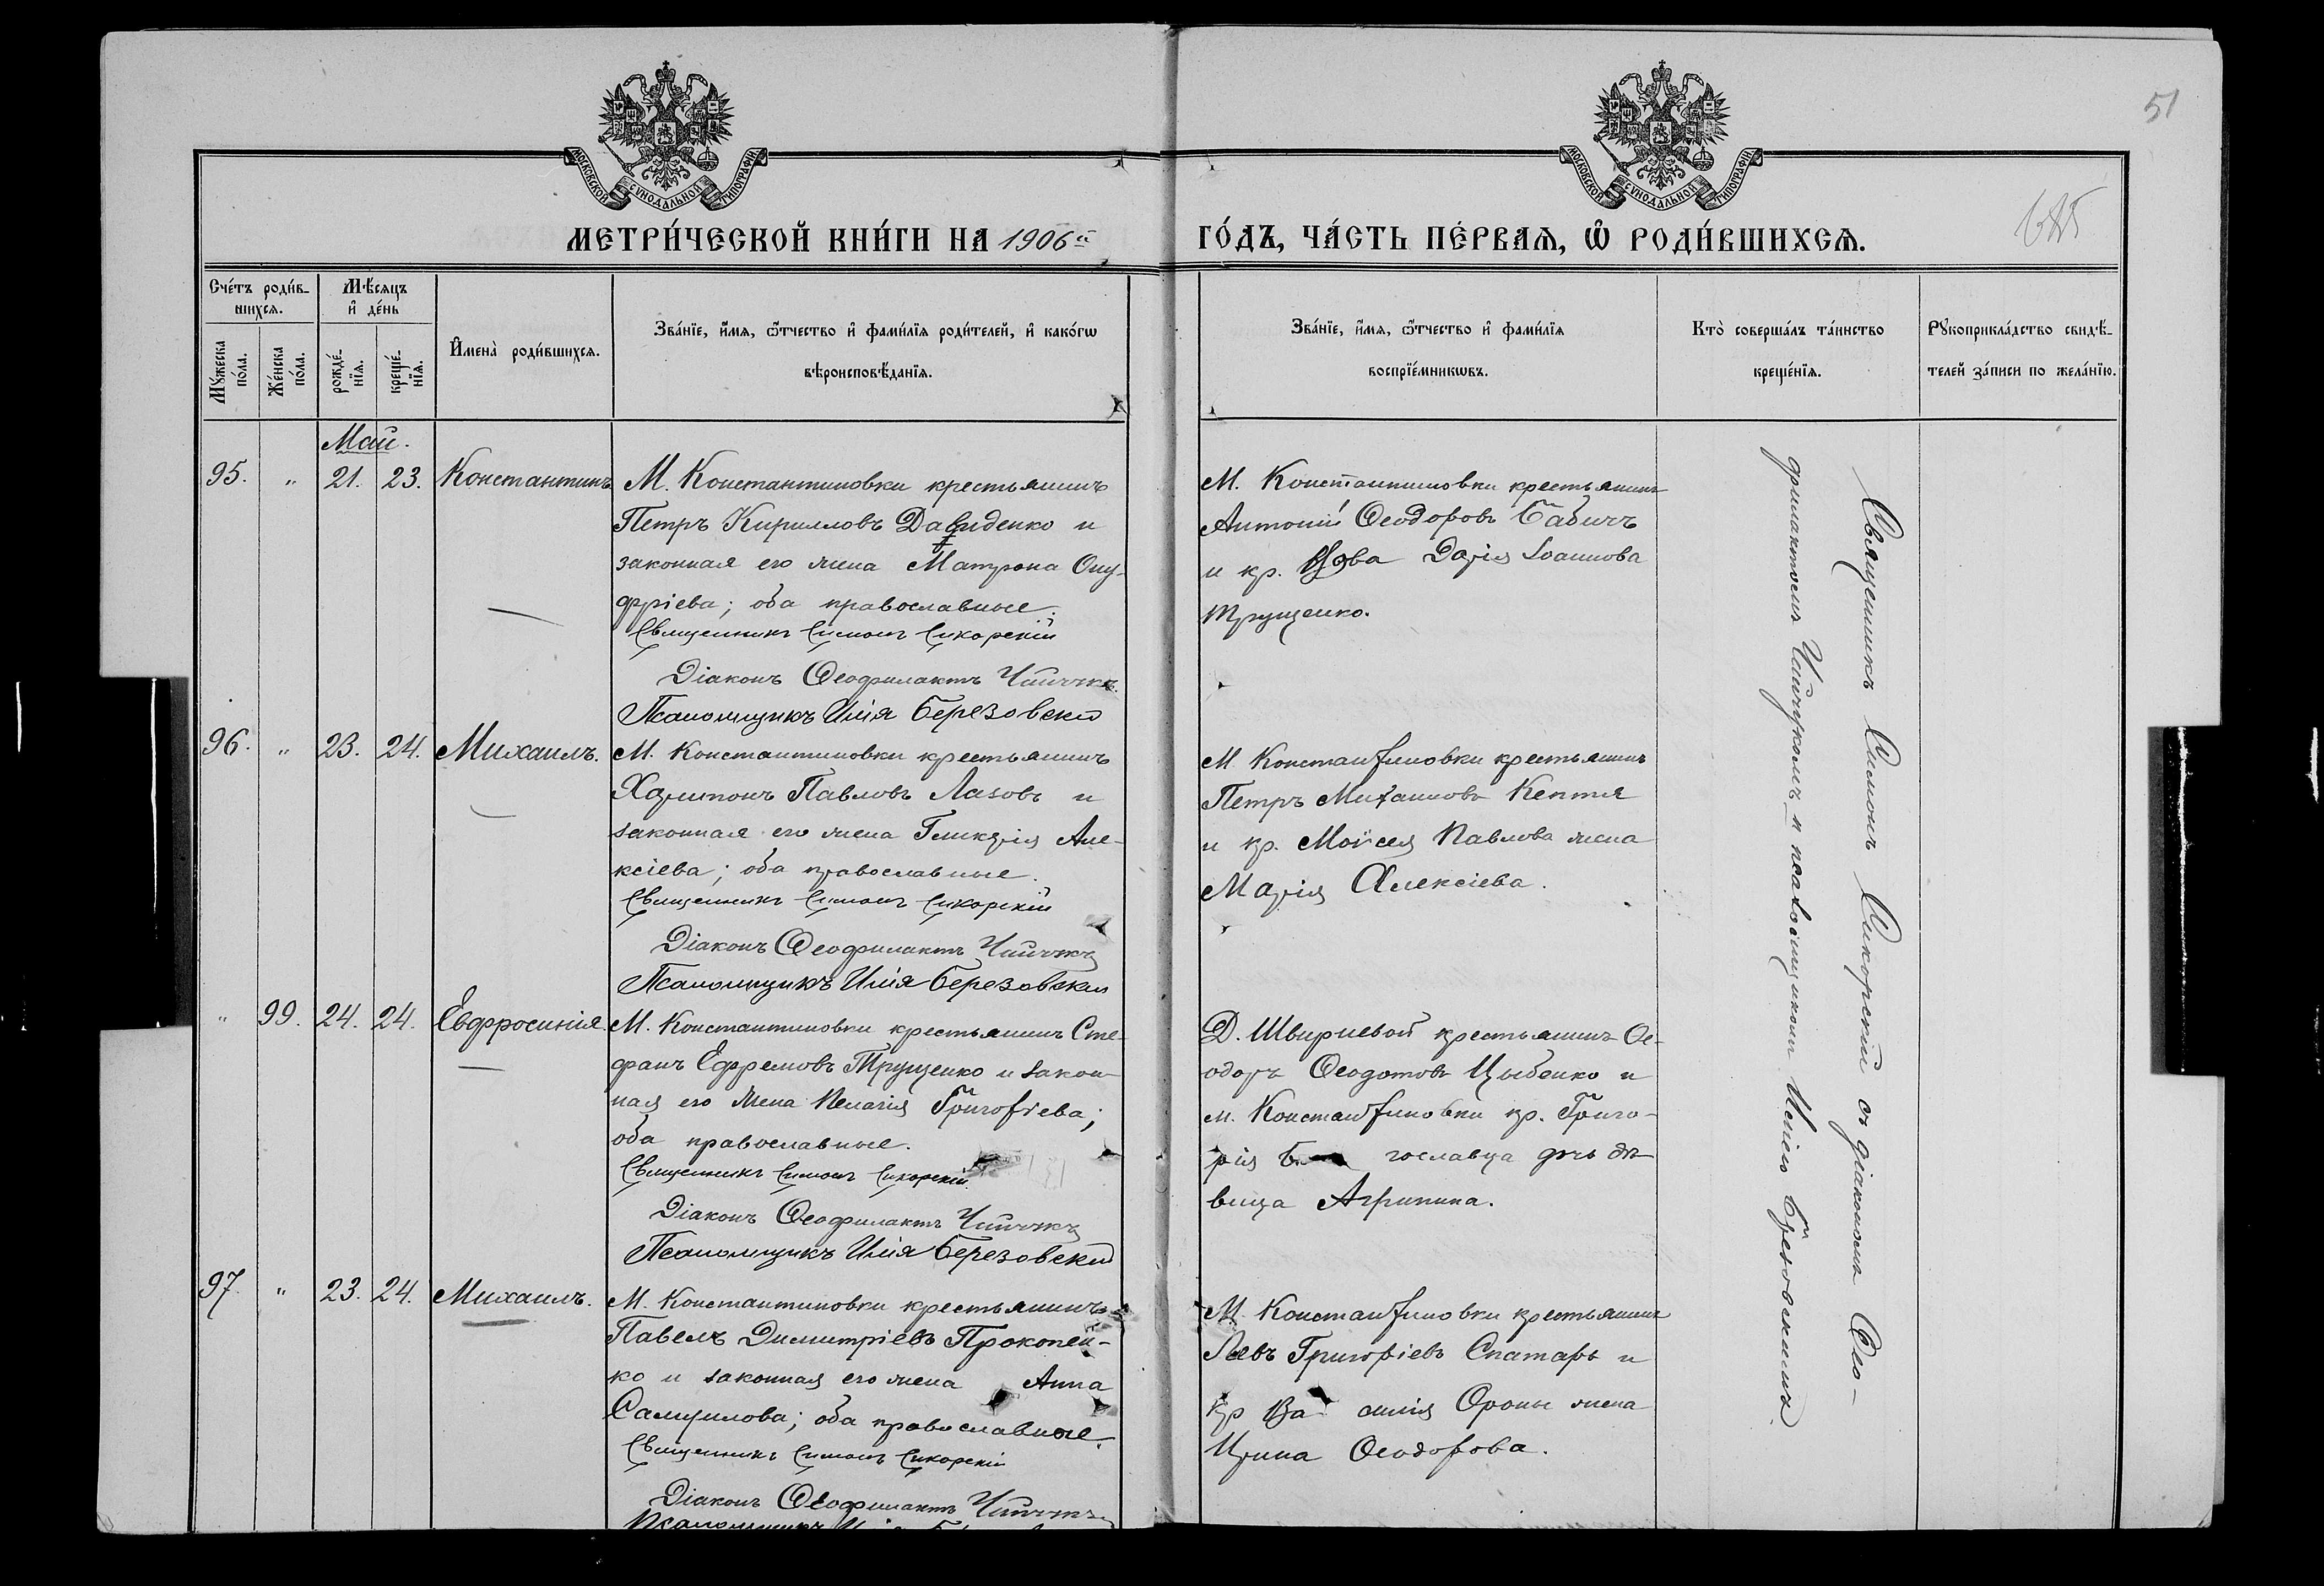 51
МОСКОВСКОЙ СѴНОДАЛЬНОЙ ТИПОГРАФІИ
МОСКОВСКОЙ СѴНОДАЛЬНОЙ ТИПОГРАФІИ
МЕТРИ́ЧЕСКОЙ КНИ́ГИ НА 1906й
ГО́ДЪ, ЧА́СТЬ ПЕ́РВАѦ, Ѡ҆ РОДИ́ВШИХСѦ.
Сче́тъ роди́в-
шихсѧ.
Мѣ́сѧцъ
и҆ де́нь
Мꙋ́жеска
по́ла.
Же́нска
по́ла.
рожде́-
нїѧ.
креще́-
нїѧ.
И҆мена̀ роди́вшихсѧ.
Зва́нїе, и҆́мѧ, ѻ҆́тчество и҆ фами́лїѧ роди́телей, и҆ како́гѡ
вѣроисповѣ́данїѧ.
Зва́нїе, и҆́мѧ, ѻ҆́тчество и҆ фами́лїѧ
воспрїе́мникѡвъ.
Кто̀ соверша́лъ та́инство
креще́нїѧ.
Рꙋкоприкла́дство свидѣ́-
телей за́писи по жела́нїю.
Май.
95. „ 21. 23. Константинъ
М. Константиновки крестьянинъ
Петръ Кирилловъ Давиденко и
законная его жена Матрона Ону-
фріева; оба православные.
Священникъ Симонъ Сикорскій
Діаконъ Ѳеофилактъ Чийчукъ
Псаломщикъ Илія Березовскій
М. Константиновки крестьянинъ
Антоній Ѳеодоровъ Бабичъ
и кр. Дарія Іоаннова
Трущенко.
96. „ 23. 24. Михаилъ.
М. Константиновки крестьянинъ
Харитонъ Павловъ Лазовъ и
законная его жена Гликерія Але-
ксіева; оба православные.
Священникъ Симонъ Сикорскій
Діаконъ Ѳеофилактъ Чийчукъ
Псаломщикъ Илія Березовскій
М. Константиновки крестьянинъ
Петръ Михаиловъ Кептя
и кр. Моисея Павлова жена
Марія Алексіева.
„ 99. 24. 24. Евфросинія
М. Константиновки крестьянинъ Сте-
фанъ Ефремовъ Трущенко и закон-
ная его жена Пелагія Григоріева;
оба православные.
Священникъ Симонъ Сикорскій
Діаконъ Ѳеофилактъ Чийчукъ
Псаломщикъ Илія Березовскій
Д. Швыриевой крестьянинъ Ѳе-
одоръ Ѳеодотовъ Цыбенко и
м. Константиновки кр. Григо-
рія гославца дочь дѣ-
вица Агрипина.
97. „ 23. 24. Михаилъ.
М. Константиновки крестьянинъ
Павелъ Димитріевъ Прокопен-
ко и законная его жена Анна
Самуилова; оба православные.
Священникъ Симонъ Сикорскій
Діаконъ Ѳеофилактъ Чийчукъ
Псаломщикъ Илія
М. Константиновки крестьянинъ
Левъ Григоріевъ Спатарь и
кр Василія Ороны жена
Ирина Ѳеодорова.
Священникъ Симонъ Сикорскій съ діакономъ Ѳео-
филактомъ Чийчукомъ и псаломщикомъ Иліею Березовскимъ